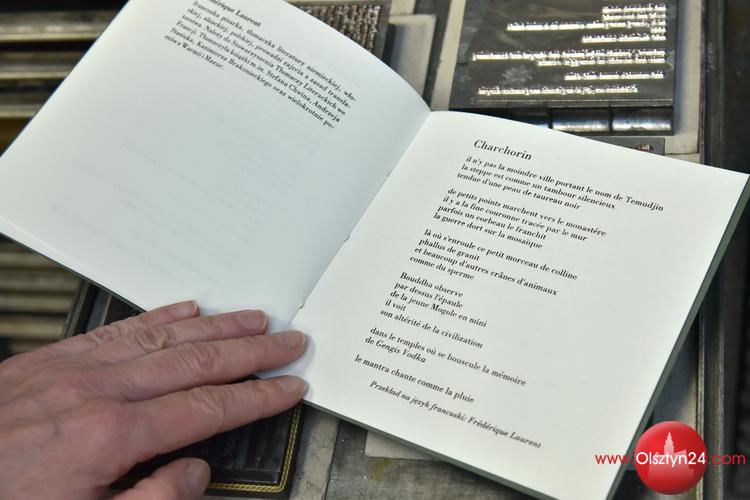 Frédérique Laurent
francuska pisarka, tłumaczka literatury niemieckiej, wło-
skiej, alzackiej, polskiej, prowadzi zajęcia z zasad transla-
torstwa. Należy do Stowarzyszenia Tłumaczy Literackich we
Francji. Tłumaczyła książki m.in. Stefana Chwina, Andrzeja
Stasiuka, Kazimierza Brakonieckiego oraz wielokrotnie po-
etów z Warmii i Mazur.
Charchorin
il n'y pas la moindre ville portant le nom de Temudjin
la steppe est comme un tambour silencieux
tendue d'une peau de taureau noir
de petits points marchent vers le monastére
il y a la fine couronne tracée par le mur
parfois un corbeau le franchit
la guerre dort sur la mosaïque
là où s'enroule ce petit morceau de colline
phallus de granit
et beaucoup d'autres crânes d'animaux
comme du sperme
Bouddha observe
par dessus l'épaule
de la jeune Mogole en mini
il voit
son altérité de la civilization
dans le temples où se bouscule la mémoire
de Gengis Vodka
le mantra chante comme la pluie
Przekład na język francuski: Frédérique Laurent
www.Olsztyn24.com